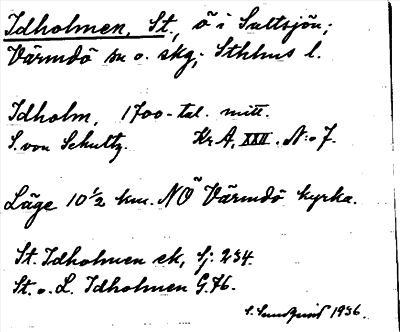 Idholmen, St., ö i Saltsjön;
Värmdö sn o. skg; Sthlms l.
Idholm, 1700-tal. mitt.
S. von Schultz. Kr A, XXII. N:o 7.
Läge 10½ km. NO Värmdö kyrka.
St. Idholmen ek, Sj: 234.
St. o. L. Idholmen G.76.
1936.